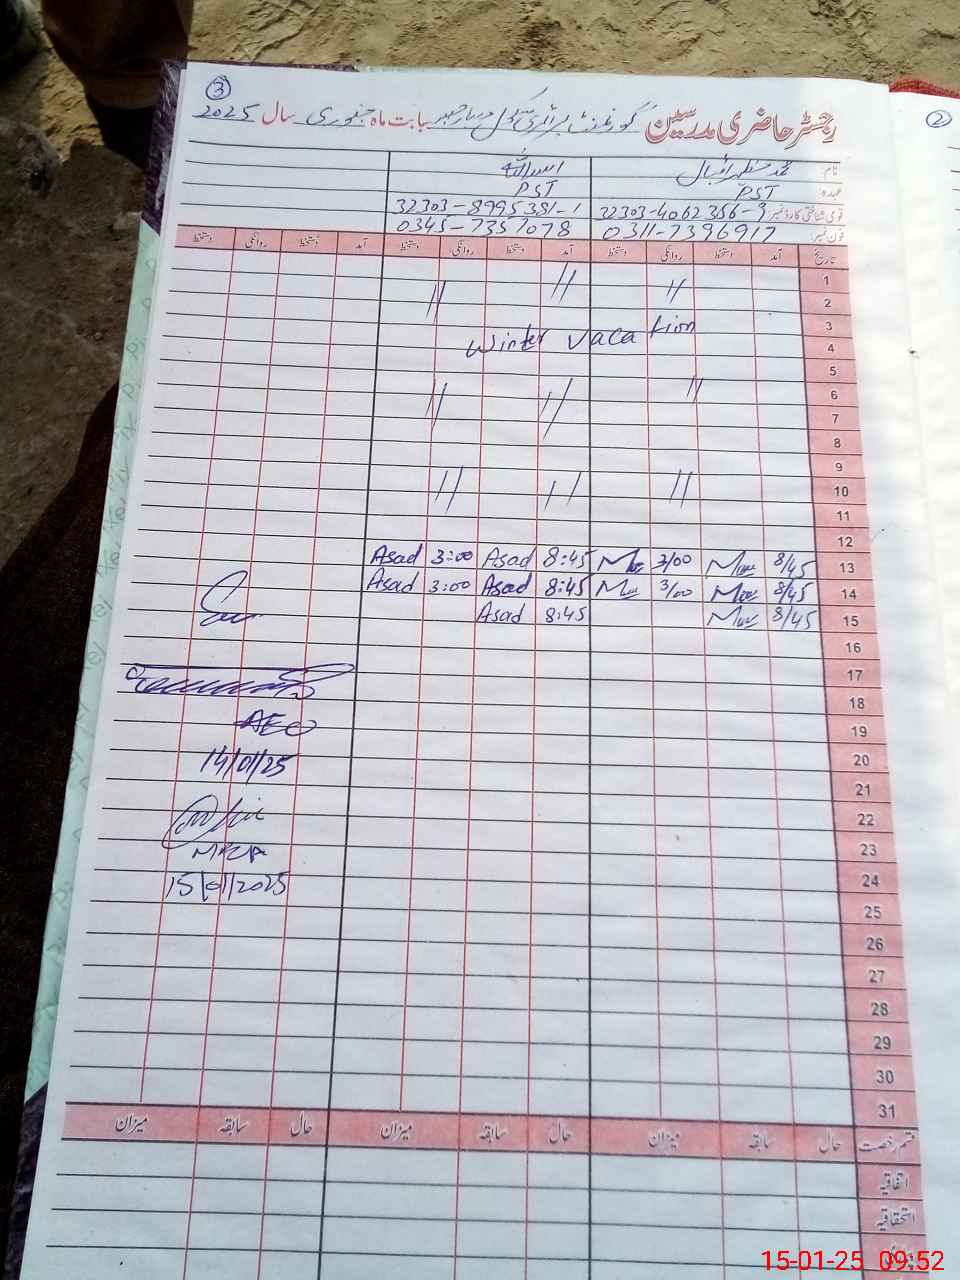 3
رجسٹر حاضری مدرسین گورنمنٹ پرائمری سکول بابت ماہ جنوری سال 2025
2
نام محمد مظہر اقبال اسد اللہ
عہدہ PST PST
قومی شناختی کارڈ نمبر 32303-4062356-9 32303-8995381-1
فون نمبر 0311-7396917 0345-7351078
تاریخ آمد دستخط روانگی دستخط آمد دستخط روانگی دستخط آمد دستخط روانگی دستخط
1 // //
2 //
3 Winter Vacation
4
5
6 // // //
7
8
9
10 // // //
11
12
13 8/45 3/00 8:45 Asad 3:00 Asad
14 8/45 3/00 8:45 Asad 3:00 Asad
15 8/45 8:45 Asad
16
17
18
19 AEO
20 14/01/25
21
22
23 MEA
24 15/01/2025
25
26
27
28
29
30
31
قسم رخصت حال سابقہ میزان حال سابقہ میزان حال سابقہ میزان
اتفاقیہ
استحقاقیہ
15-01-25 09:52